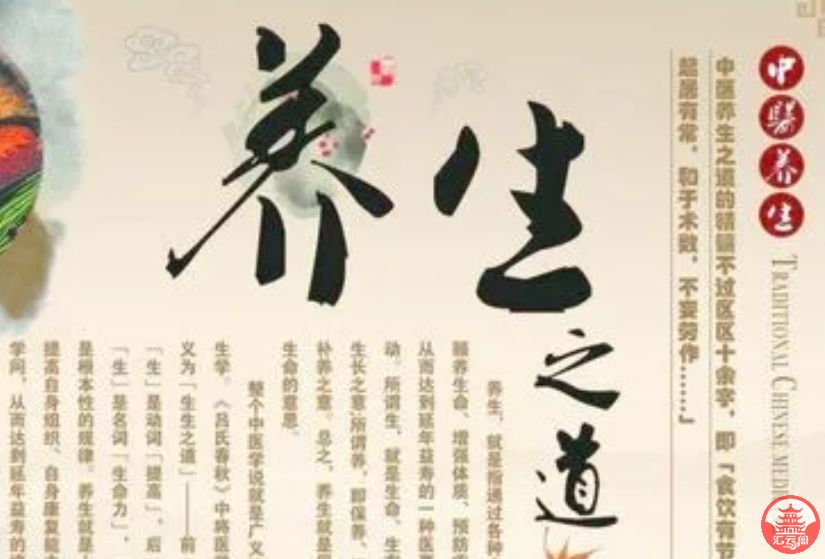 中醫养生
TRADITIONAL CHINESE MEDI
中医养生之道的精髓不过区区十余字，即「食饮有节
起居有常，和于术数，不妄劳作……」
养生
之道
养生，就是指通过各种
颐养生命、增强体质、预防
从而达到延年益寿的一种医
动。所谓生，就是生命、生
生长之意；所谓养，即保养、
补养之意。总之，养生就是
生命的意思。
整个中医学说就是广义
生学。《吕氏春秋》中将医
义为「生生之道」——前
「生」是动词「提高」，后
「生」是名词「生命力」，
是根本性的规律。养生就是
提高自身组织、自身康复能
学问，从而达到延年益寿的
汇云阁